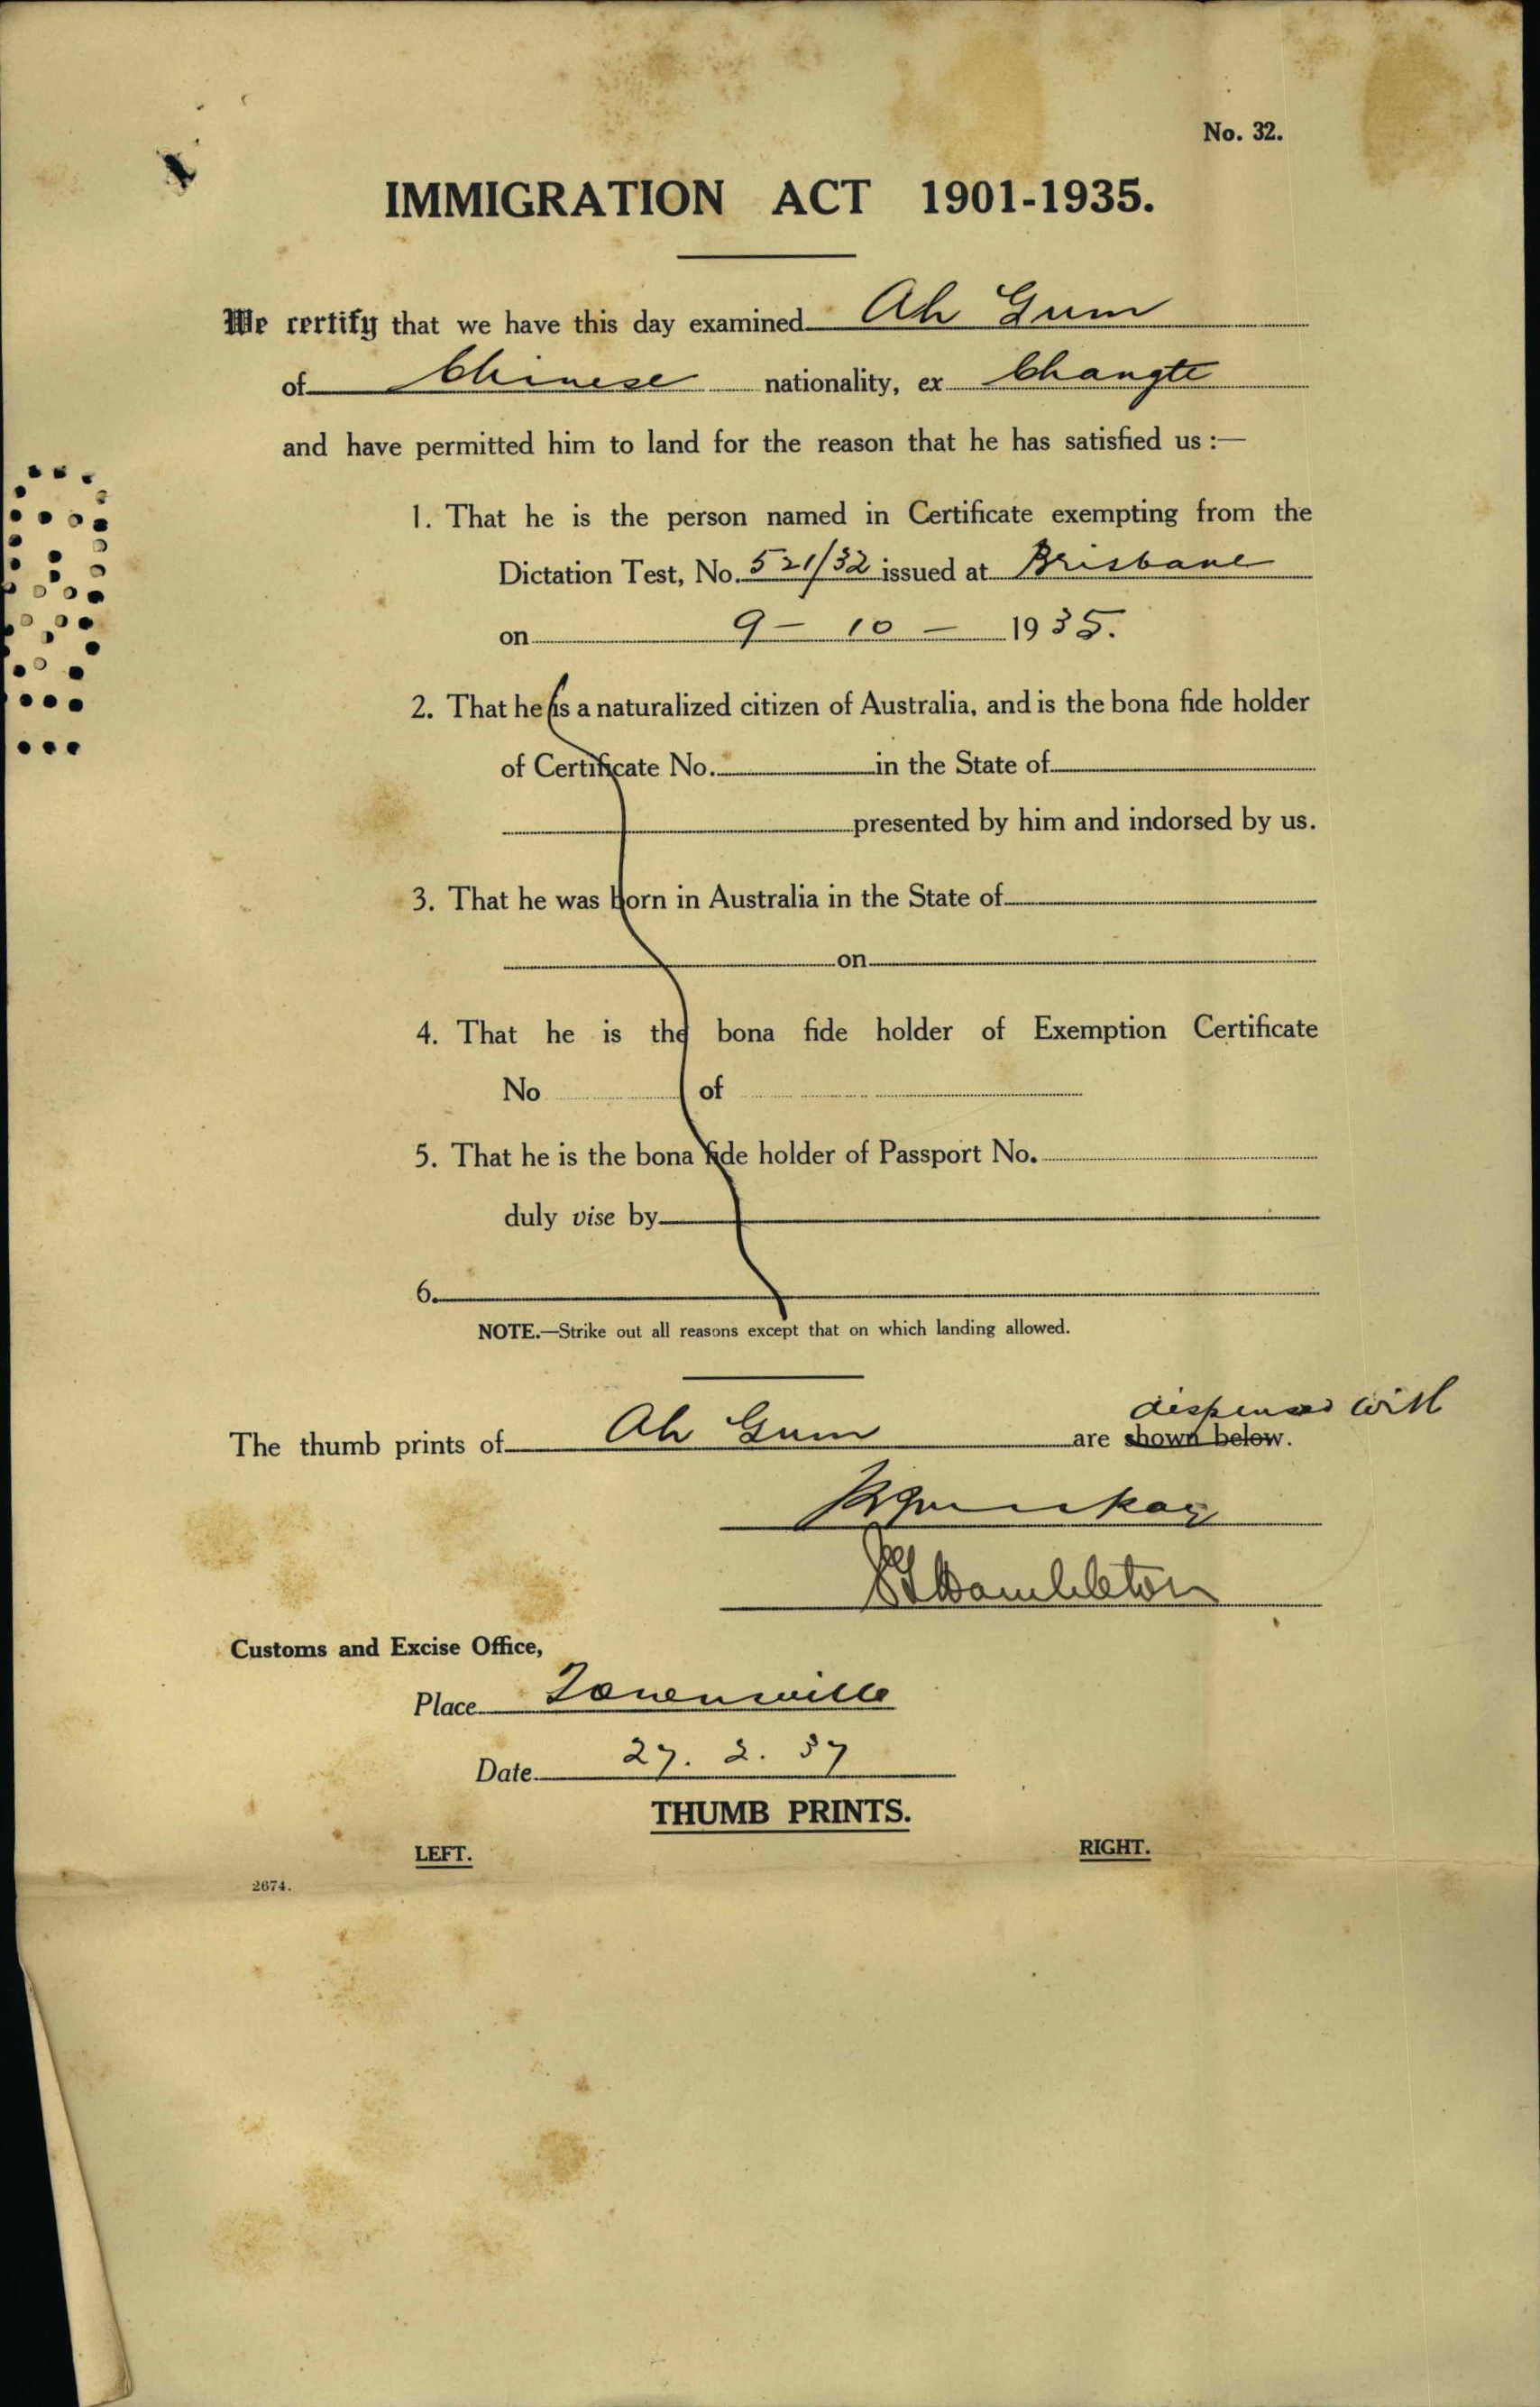 No. 32.
IMMIGRATION ACT 1901-1935.
We certify that we have this day examined Ah Gum
of Chinese nationality, ex Changte
and have permitted him to land for the reason that he has satisfied us :—
1. That he is the person named in Certificate exempting from the
Dictation Test, No. 521/32 issued at Brisbane
on 9 - 10 - 1935.
2. That he is a naturalized citizen of Australia, and is the bona fide holder
of Certificate No. in the State of
presented by him and indorsed by us.
3. That he was born in Australia in the State of
on
4. That he is the bona fide holder of Exemption Certificate
No of
5. That he is the bona fide holder of Passport No.
duly vise by
6.
NOTE.—Strike out all reasons except that on which landing allowed.
dispensed with
The thumb prints of Ah Gum are shown below.
Hambleton
Customs and Excise Office,
Place Townsville
Date 27. 2. 37
THUMB PRINTS.
LEFT. RIGHT.
2674.